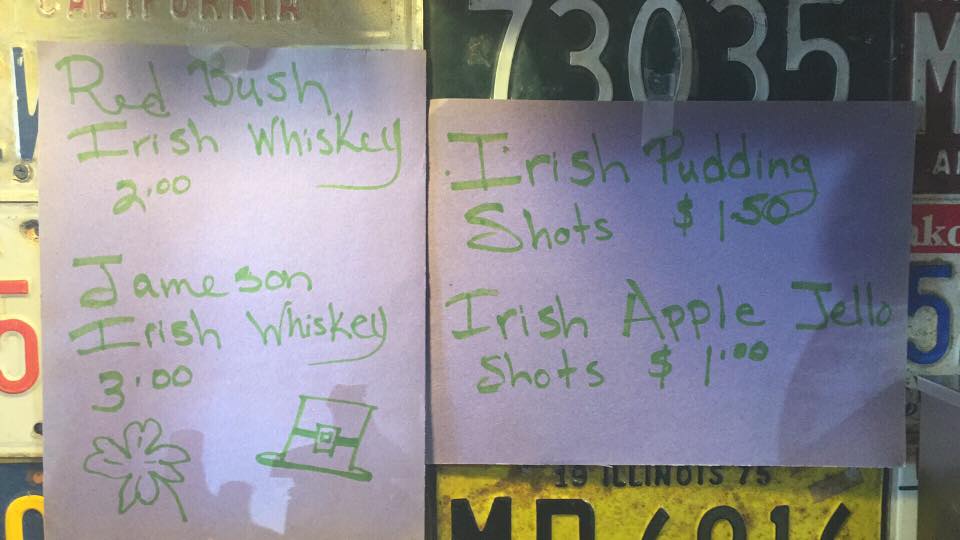 CALIFORNIA
73035
Red Bush
Irish Whiskey
2.00
Jameson
Irish Whiskey
3.00
Irish Pudding
Shots $1.50
Irish Apple Jello
Shots $1.00
19 ILLINOIS 75